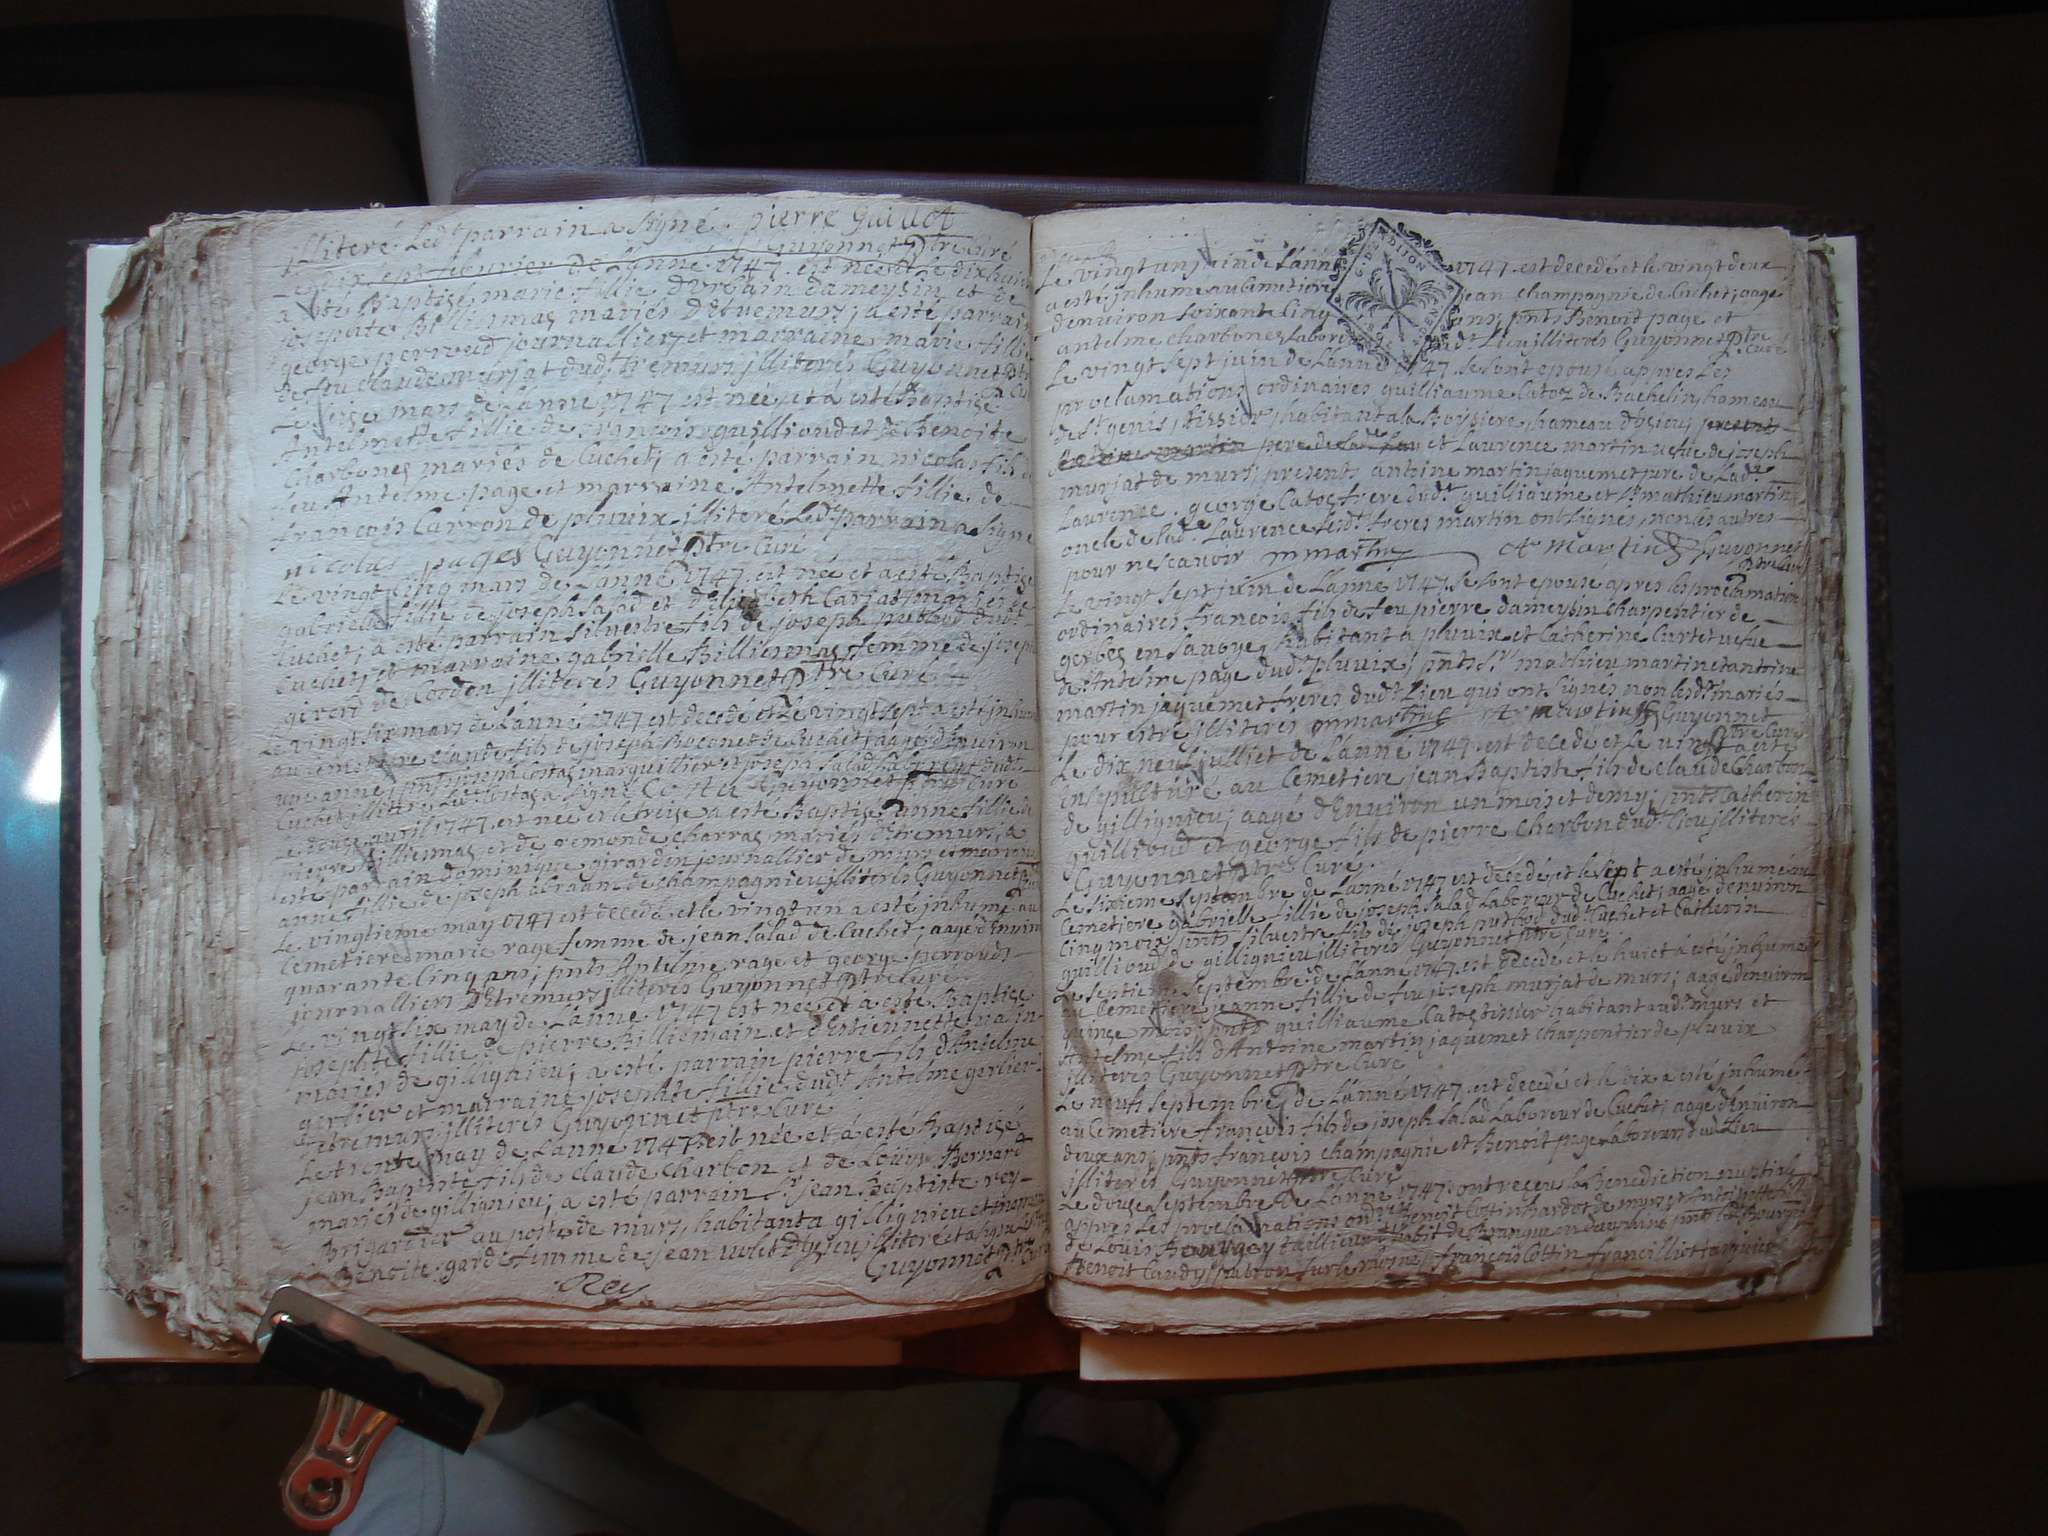 jlliteré Ledt parrain a signé. pierre Guillot
Guyonnet Ptre Curé
Le dix sept febvrier de Lanné 1747. est née et Le dixhuit
a esté Baptisé marie fillie d'urbain dameysin et de
josephte Billiemas mariés d'Etremurs; a esté parrain
george perroud journallier; et marraine marie fillie
de feu claude murjat dudt tremurs jlliterés Guyonnet Ptre
Curé
Le mars de Lanné 1747 est née et a esté Baptisé
Antelmette fillie de françois quillioud et de Benoite
Charbones mariés de Cuchet; a esté parrain nicolas fils de
feu Antelme page et marraine Antelmette fillie de
françois Carron de pluvix jlliteré Ledt parrain a signé
nicolas pages Guyonnet Ptre Curé
Le vingt cinq mars de Lanné 1747. est née et a esté Baptisé
gabrielle fillie de joseph salad et d'Elizabeth Carjat mariés de
Cuchet; a esté parrain silvestre fils de joseph putbod dudt
Cuchet; et marraine gabrielle Billiemas femme de joseph
girerd de Cordon jlliterés Guyonnet Ptre Curé
Le vingt six mars de Lanné 1747 est decedé et Le vingt sept a esté jnhumé
au cemetiere claude fils de joseph de Cuchet; aagé d'Environ
un anné; pnts joseph Costaz marguillier et joseph salad Laboreur dudt
Cuchet jlliteré Ledt Costaz a signé Costa Guyonnet ptre Curé
Le douze avril 1747. est née et le treize a esté Baptisé anne fillie de
pierre Billiemas et de remonde charras mariés d'Etremurs; a
esté parrain dominique girardin journallier de murs et marraine
anne fillie de joseph abraam de champagnieu jlliterés Guyonnet Ptre
Le vingtieme may 1747 est decedé et le vingt un a esté jnhumé au
Cemetiere marie rage femme de jean salad de Cuchet; aagé d'Environ
quarante Cinq ans; pnts Antelme rage et george perroud
journalliers D'Etremurs jlliterés Guyonnet Ptre Curé
Le vingt six may de Lanné 1747 est née et a esté Baptisé
josephte fillie de pierre Billiemain et d'Estiennette
mariés de gillignieu; a esté parrain pierre fils d'Antelme
gerlier et marraine josephte fillie dudt Antelme gerlier
d'etremurs jlliterés Guyonnet ptre Curé
Le trente may de Lanné 1747. est née et a esté Baptisé
jean Baptiste fils de Claude Charbon et de Louyse Bernard
mariés de gillignieu; a esté parrain sr jean Baptiste rey
Brigardier au poste de murs, habitant a gillignieu et marraine
Benoite garde femme de jean volet jlliteré et a signé
Guyonnet Ptre Curé
Rey
Le vingt un juin de Lanné 1747. est decedé et le vingt deux
a esté jnhumé au Cemetiere jean champagnie de Cuchet; aagé
d'environ soixante Cinq ans; pnts Benoit page et
antelme charbones Labor dudt Lieu jlliterés Guyonnet Ptre
Curé
Le vingt sept juin de Lanné 1747. se sont epousé appres Les
proclamations ordinaires guilliaume Catos de Bachelin, hameau
de St genis, tissier, habitant a la Boissiere, hameau d'ysieu; present
antoine martin pere de Lade et Laurence martin vefve de joseph
murjat de murs; presents antoine martin jaquemet pere de Lade
Laurence. george Catos frere dudt guilliaume et sr mathieu martin
oncle de Lade Laurence Lesdt freres martin ont signés, non les autres
pour ne scavoir m martin At Martin Guyonnet
Ptre Curé
Le vingt sept juin de Lanné 1747. se sont epousé apres les proclamations
ordinaires françois fils de feu pierre dameysin charpentier de
gerbes en savoye, habitant a pluvix et Catherine Curtet vefve
de Antelme page dudt pluvix; pnts sr mathieu martin et antoine
martin jaquemet freres dudt Lieu qui ont signés non lesdt mariés
pour estre jlliterés m martin At martin Guyonnet
Ptre Curé
Le dix neuf julliet de Lanné 1747. est decedé et Le vingt a esté
Ensepulturé au Cemetiere jean Baptiste fils de Claude Charbon
de gillignieu; aagé d'Environ un mois et demy; pnts Catherin
quillioud et george fils de pierre Charbon dudt Lieu jlliterés
Guyonnet Ptre Curé.
Le sixieme septembre de Lanné 1747 est decedé et le sept a esté jnhumé au
Cemetiere gabrielle fillie de joseph salad Laboreur de Cuchet; aagé d'environ
Cinq mois; pnts silvestre fils de joseph putbod dudt Cuchet et Catherin
quillioud de gillignieu jlliterés Guyonnet Ptre Curé.
Le septieme septembre de Lanné 1747. est decedé et le huict a esté jnhumé
au Cemetiere jeanne fillie de feu joseph murjat de murs; aagé d'environ
quinze mois; pnts guilliaume Catos tissier habitant audt murs et
Antelme fils d'Antoine martin jaquemet charpentier de pluvix
jlliterés Guyonnet Ptre Curé
Le neufs septembre de Lanné 1747. est decedé et le dix a esté jnhumé
au Cemetiere françois fils de joseph salad Laboreur de Cuchet; aagé d'Environ
deux ans; pnts françois champagnie et Benoit page Laboreurs dudt Lieu
jlliterés Guyonnet Ptre Curé
Le douze septembre de Lanné 1747. ont reçeu la Benediction nuptiale
appres Les proclamations ordres Benoit Cottin de murs et Antelmette fillie
de Louis taillieur d'habit de pnts
Benoit Caudy, patron sur le rhosne, françois Cottin